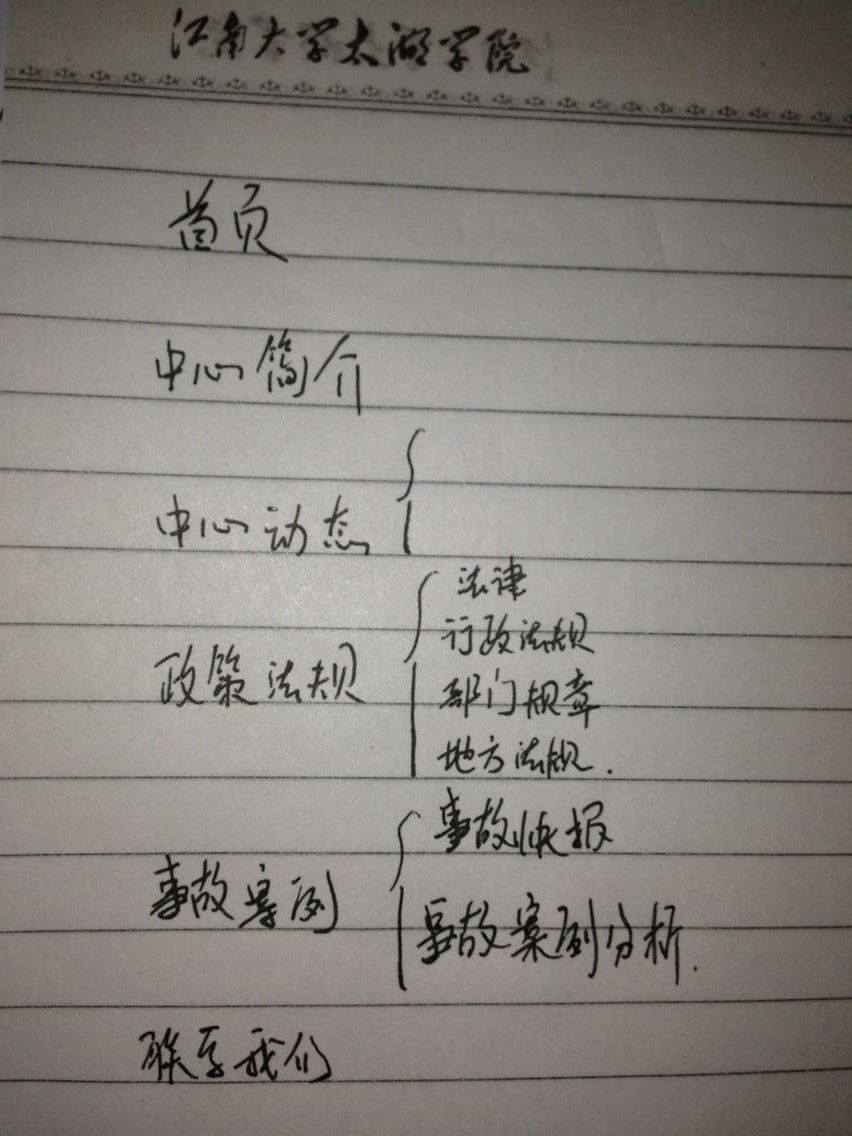 江南大学太湖学院
首页
中心简介
中心动态
政策法规
法律
行政法规
部门规章
地方法规.
事故案例
事故快报
事故案例分析.
联系我们